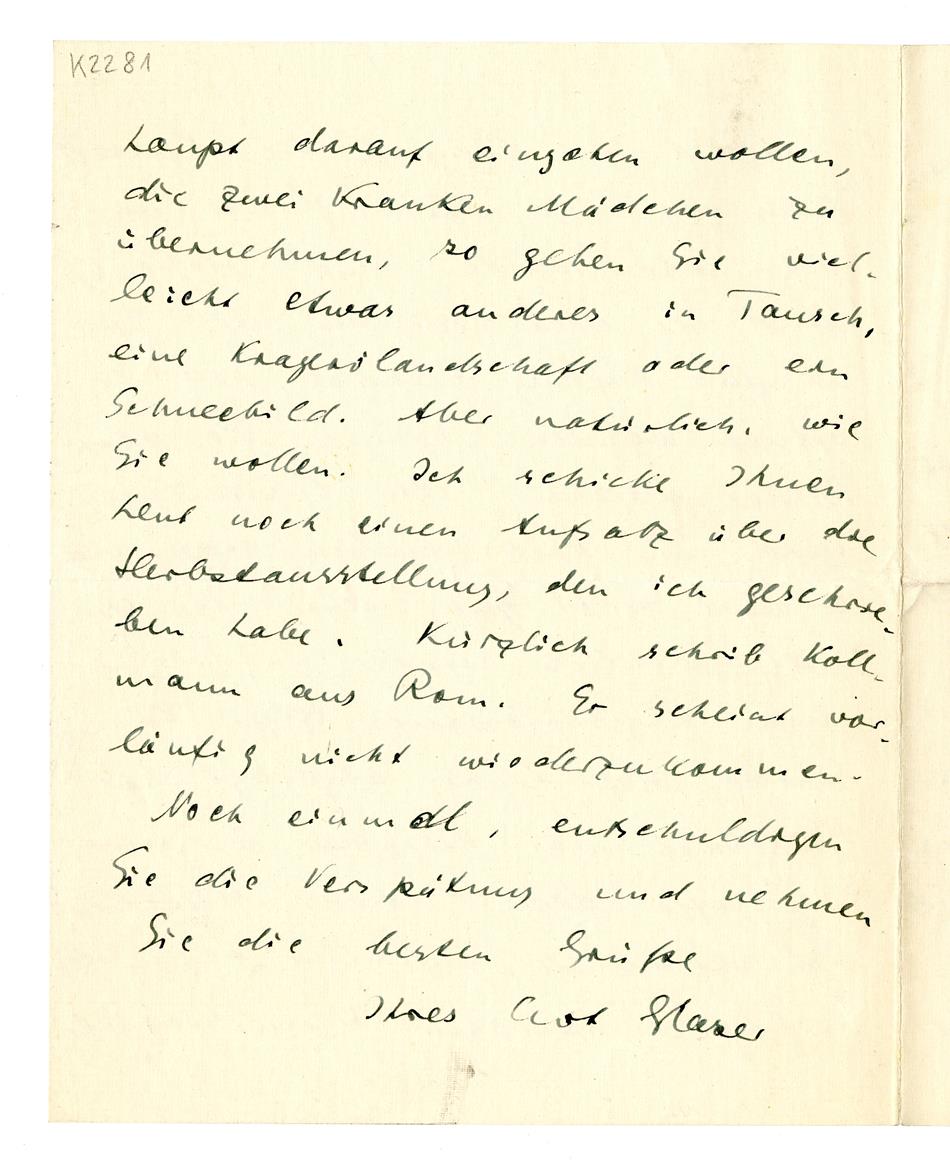 K2281
haupt darauf eingehen wollen,
die zwei Kranken Mädchen zu
übernehmen, so geben Sie viel-
leicht etwas anderes in Tausch,
eine Kragerölandschaft oder ein
Schneebild. Aber natürlich, wie
Sie wollen. Ich schicke Ihnen
heut noch einen Aufsatz über die
Herbstausstellung, den ich geschrie-
ben habe. Kürzlich schrieb Koll-
mann aus Rom. Er scheint vor-
läufig nicht wiederzukommen.
Noch einmal, entschuldigen
Sie die Verspätung und nehmen
Sie die besten Grüße
Ihres Curt Glaser